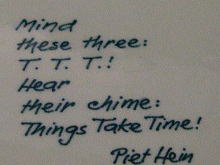 Mind
these three:
T. T. T.!
Hear
their chime:
Things Take Time!
Piet Hein